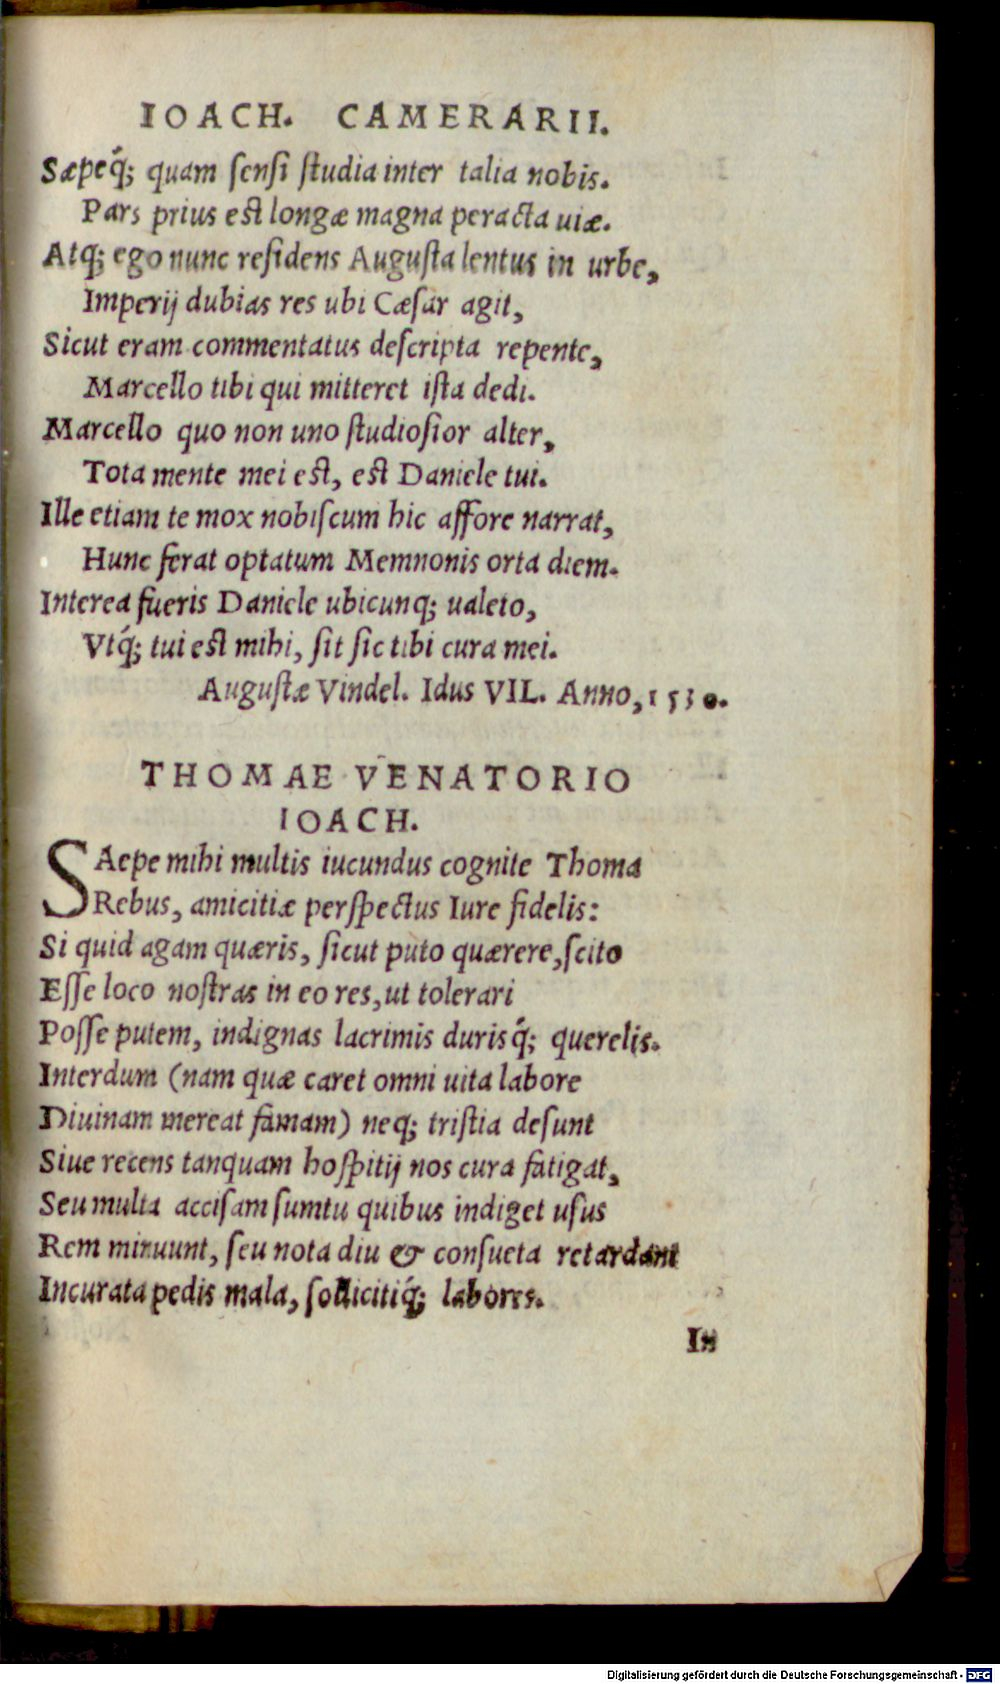 IOACH. CAMERARII.
Sæpeq́; quam ſenſi ſtudia inter talia nobis.
Pars prius eſt longæ magna peracta uiæ.
Atq; ego nunc reſidens Auguſta lentus in urbe,
Imperij dubias res ubi Cæſar agit,
Sicut eram commentatus deſcripta repente,
Marcello tibi qui mitteret iſta dedi.
Marcello quo non uno ſtudioſior alter,
Tota mente mei eſt, eſt Daniele tui.
Ille etiam te mox nobiſcum hic affore narrat,
Hunc ferat optatum Memnonis orta diem.
Interea fueris Daniele ubicunq; ualeto,
Vtq́; tui eſt mihi, ſit ſic tibi cura mei.
Auguſtæ Vindel. Idus VII. Anno, 1530.
THOMAE VENATORIO
IOACH.
SAepe mihi multis iucundus cognite Thoma
Rebus, amicitiæ perſpectus Iure fidelis:
Si quid agam quæris, ſicut puto quærere, ſcito
Eſſe loco noſtras in eo res, ut tolerari
Poſſe putem, indignas lacrimis durisq́; querelis.
Interdum (nam quæ caret omni uita labore
Diuinam mereat famam) neq; triſtia deſunt
Siue recens tanquam hoſpitij nos cura fatigat,
Seu multa acciſam ſumtu quibus indiget uſus
Rem minuunt, ſeu nota diu & conſueta retardant
Incurata pedis mala, ſollicitiq́; labores.
In
Digitalisierung gefördert durch die Deutsche Forschungsgemeinschaft - DFG